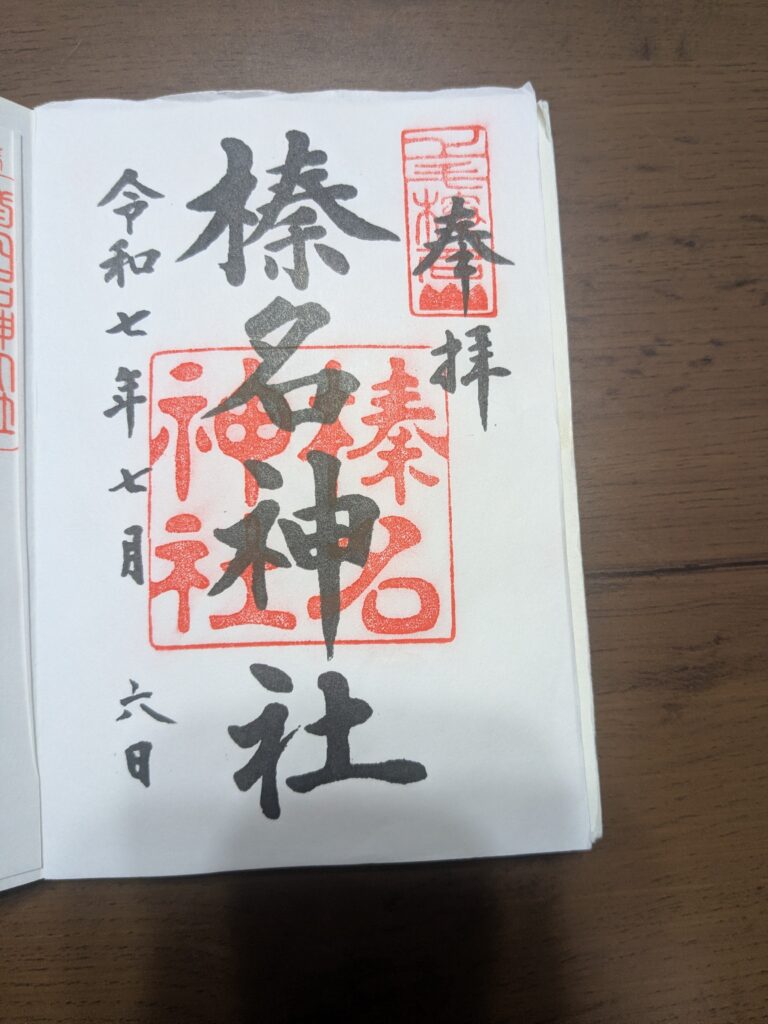 奉拝
榛名神社
榛名神社
令和七年七月六日